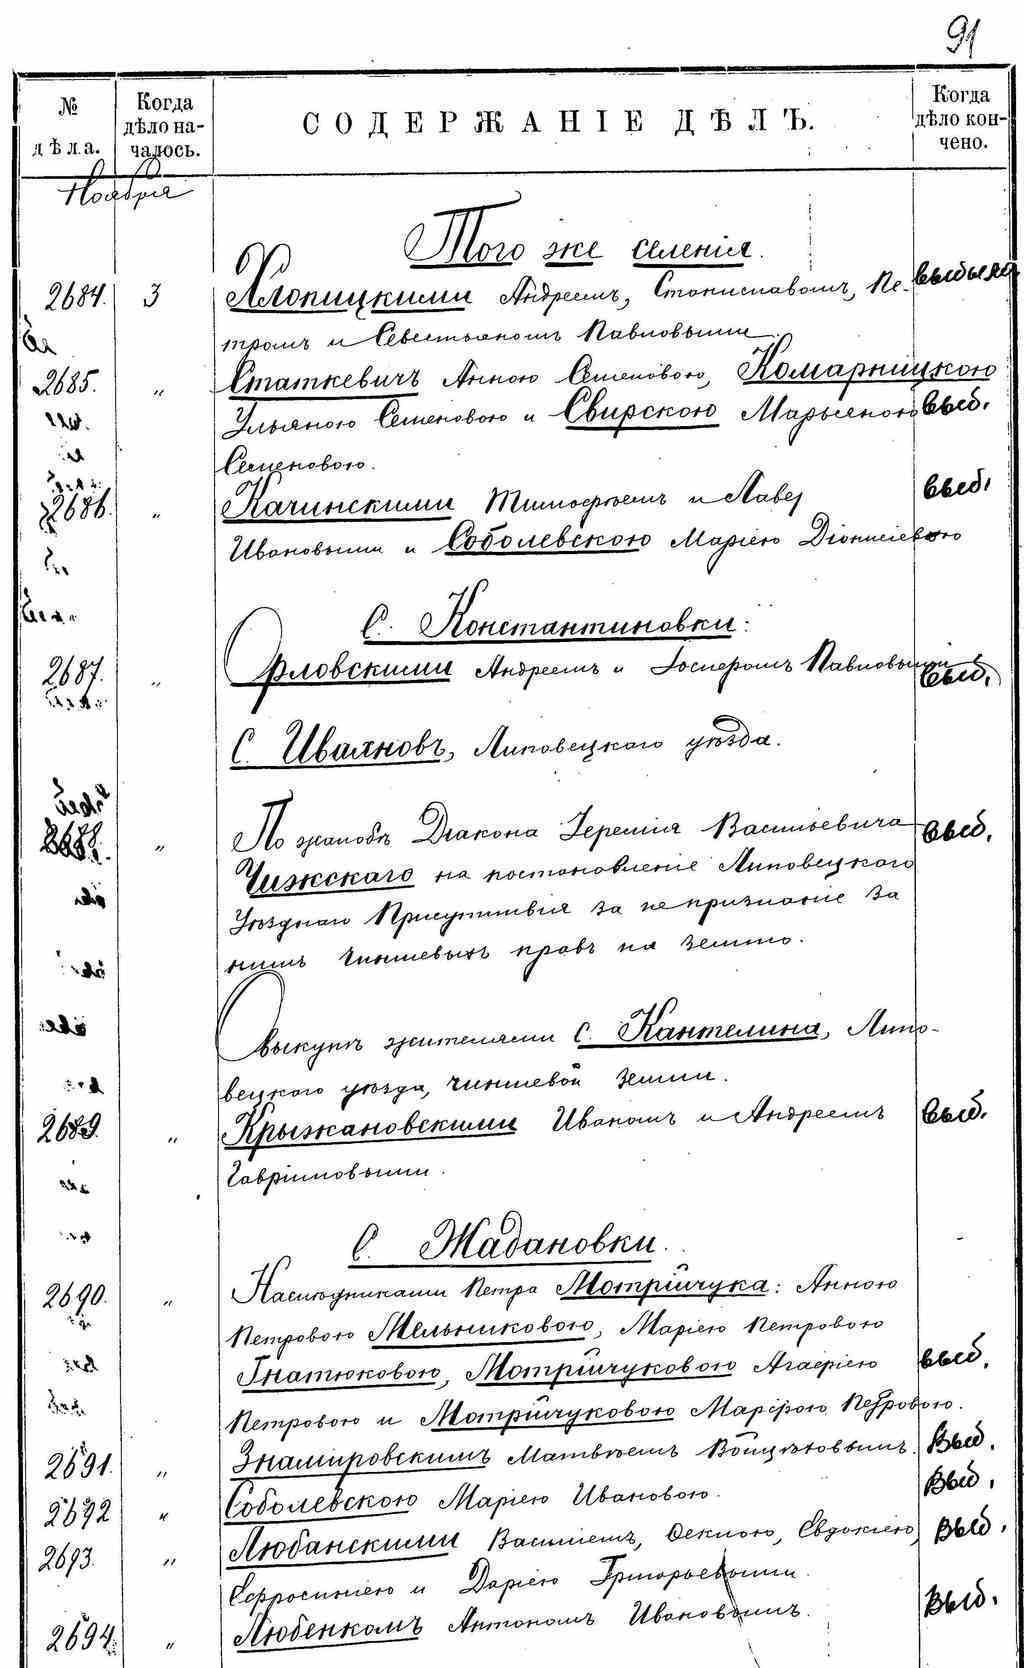 91
№ дѣла. Когда дѣло началось. СОДЕРЖАНІЕ ДѢЛЪ. Когда дѣло кончено.
Ноября
Того же селенія.
2684. 3 Хлопицкими Андреемъ, Станиславомъ, Пе- выбыла
тромъ и Севестьяномъ Павловыми.
2685. „ Статкевичъ Анною Семеновою, Комарницкою
Ульяною Семеновою и Свирскою Марьяною выб.
Семеновою.
2686. „ Качинскими Тимофѣемъ и выб.
Ивановыми и Соболевскою Маріею Діонисіевою
С. Константиновки:
2687. „ Орловскими Андреемъ и Іосиромъ Павловыми выб.
С. Иваяновъ, Липовецкого уѣзда.
2688. „ По жалобѣ Діакона Іеремія Васильевича выб.
Чижскаго на постановленіе Липовецкаго
Уѣзднаго Присутствія за непризнаніе за
нимъ чиншевыхъ правъ на землю.
О выкупѣ жителями С. Кантелина, Липо-
вецкаго уѣзда, чиншевой земли.
2689. „ Крыжановскими Иваномъ и Андреемъ выб.
Гавріиловыми.
С. Жадановки.
2690. „ Наслѣдниками Петра Мотрійчука: Анною
Петровою Мельниковою, Маріею Петровою
Гнатюковою, Мотрійчуковою Агафіею выб.
Петровою и Мотрійчуковою Петровою.
2691. „ Знамировскимъ Матвѣемъ Войцѣховымъ. Выб.
2692 „ Соболевскою Маріею Ивановою. Выб.
2693. „ Любанскими Василіемъ, Феклою, Евдокіею, Выб.
Ефросиніею и Даріею Григорьевыми.
2694. „ Любенкомъ Антономъ Ивановымъ. Выб.